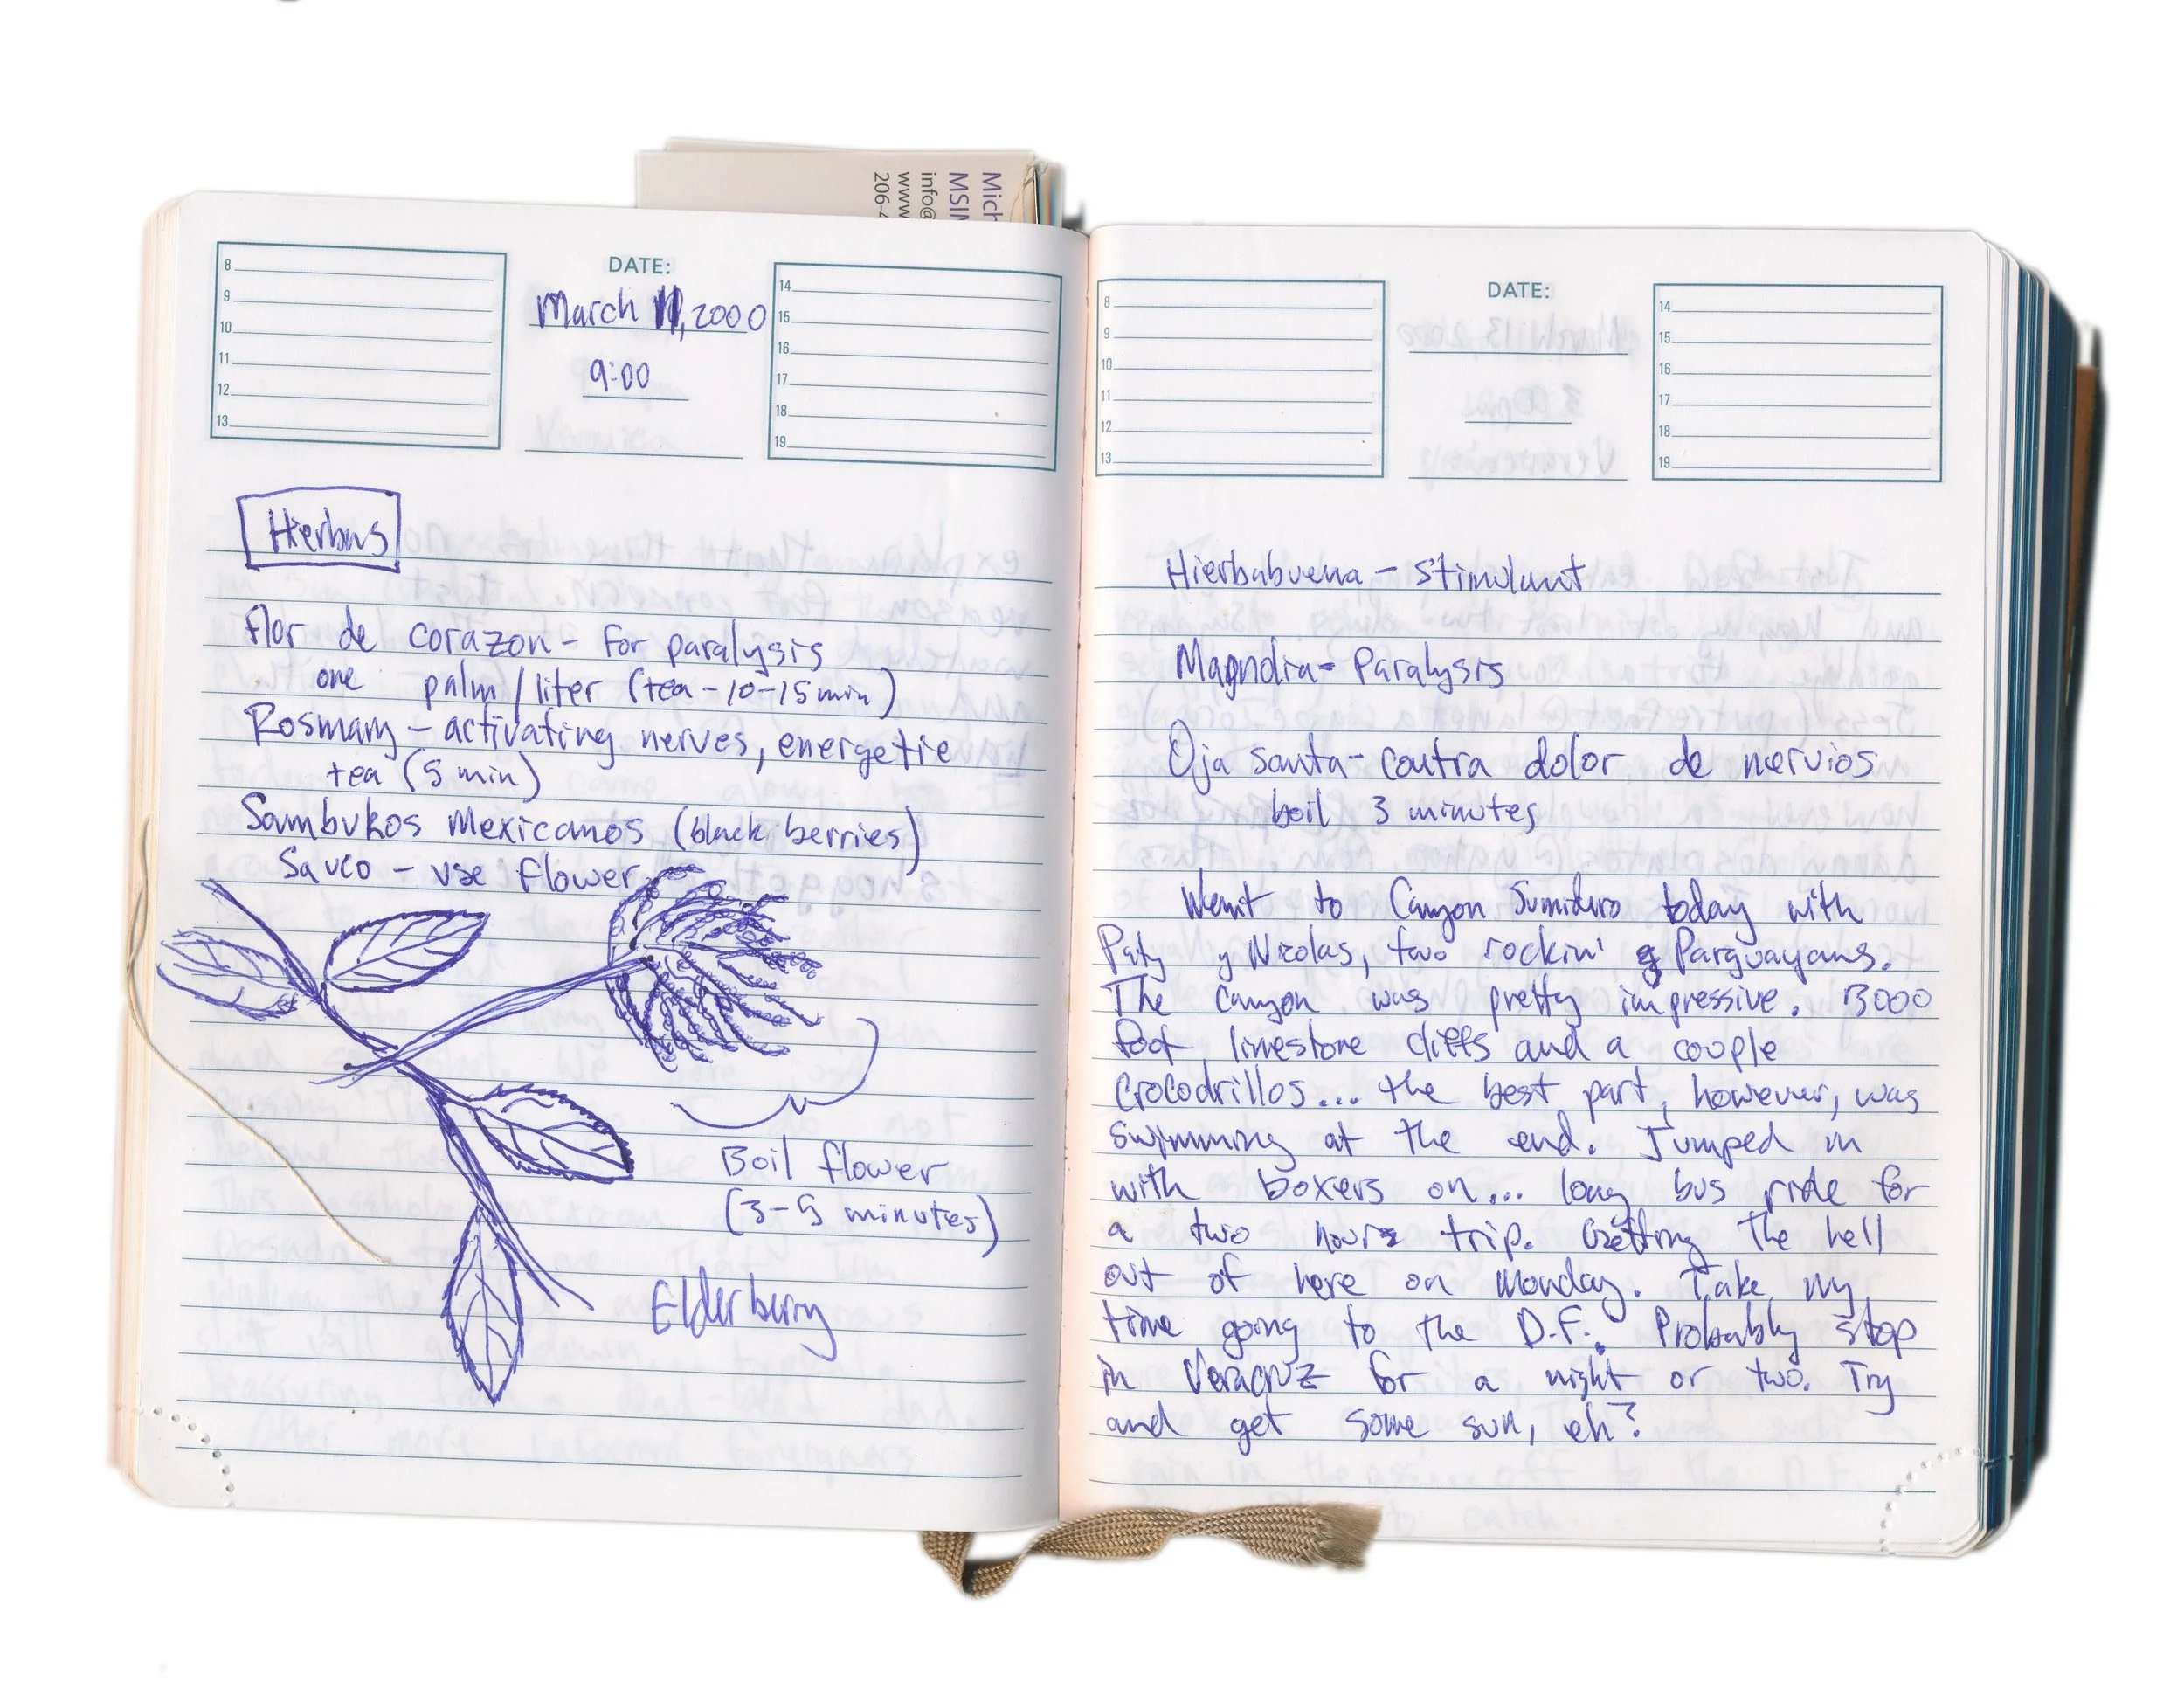 Mich
MSIM
info@
www.
206-4
8
9
10
11
12
13
DATE:
March 11, 2000
9:00
14
15
16
17
18
19
Hierbas
flor de corazon - for paralysis
one palm/liter (tea - 10-15 min)
Rosmary - activating nerves, energetic
tea (5 min)
Sambukos Mexicanos (black berries)
Sauco - use flower
Boil flower
(3-5 minutes)
Elderberry
8
9
10
11
12
13
DATE:
14
15
16
17
18
19
Hierbabuena - stimulant
Magnolia - Paralysis
Oja santa - contra dolor de nervios
boil 3 minutes
Went to Canyon Sumidero today with
Paty y Nicolas, two rockin' Parguayans.
The canyon was pretty impressive. 3000
foot limestone cliffs and a couple
crocodrillos... the best part, however, was
swimming at the end. Jumped in
with boxers on... long bus ride for
a two hour trip. Getting the hell
out of here on Monday. Take my
time going to the D.F. Probably stop
in Veracruz for a night or two. Try
and get some sun, eh?